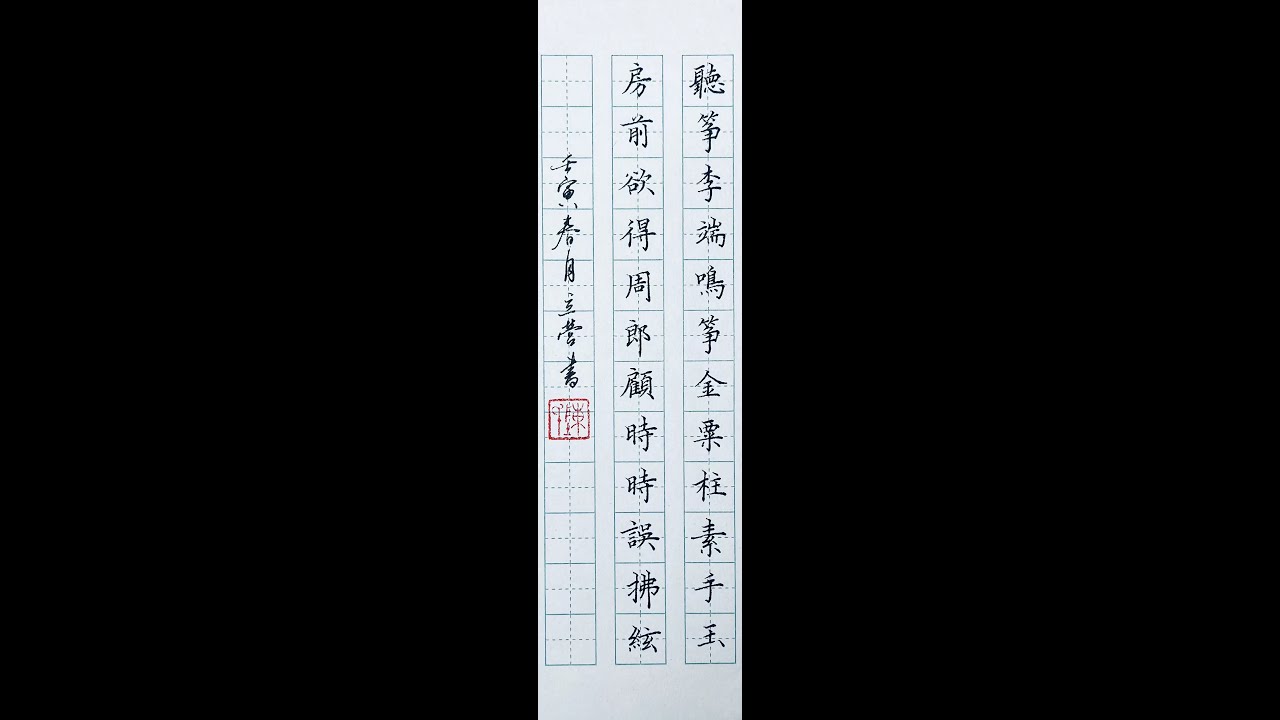 聽筝李端鳴筝金粟柱素手玉
房前欲得周郎顧時時誤拂絃
壬寅春月立营書